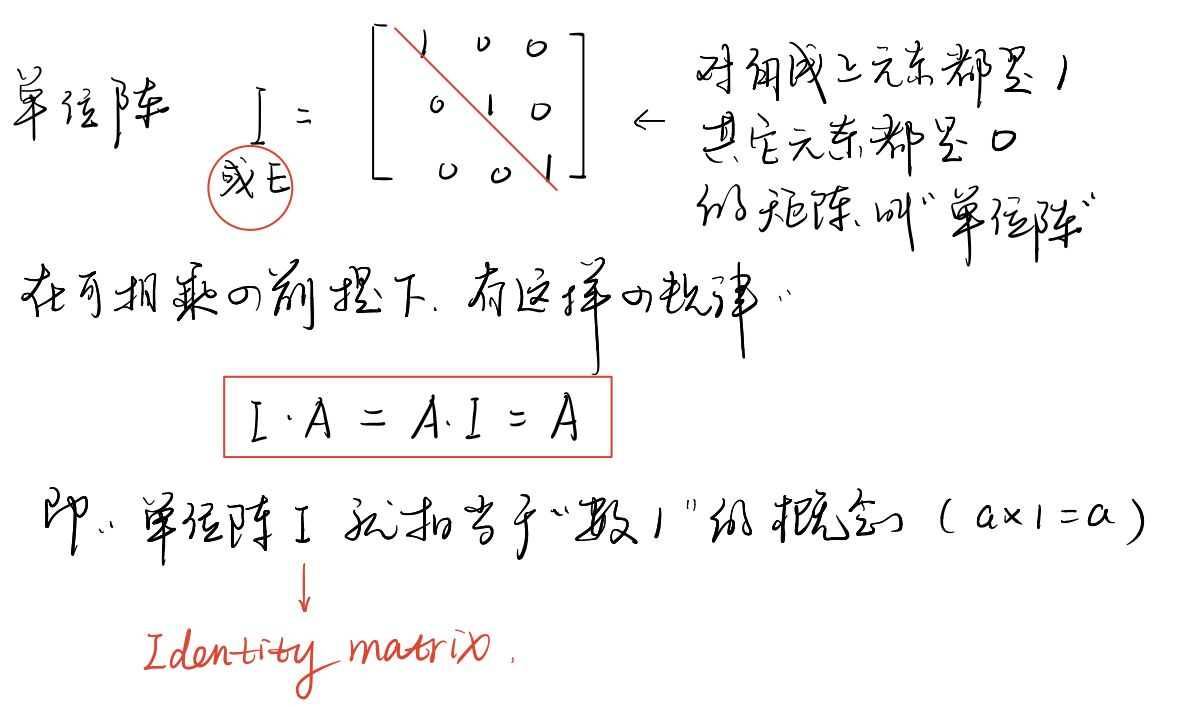 单位阵 I = [ 1 0 0
0 1 0
0 0 1 ]
或E
← 对角线上元素都是1
其它元素都是0
的矩阵、叫"单位阵"
在可相乘の前提下. 有这样の规律:
I · A = A · I = A
即: 单位阵 I 就相当于"数1"的概念 ( a×1=a )
↓
Identity matrix.